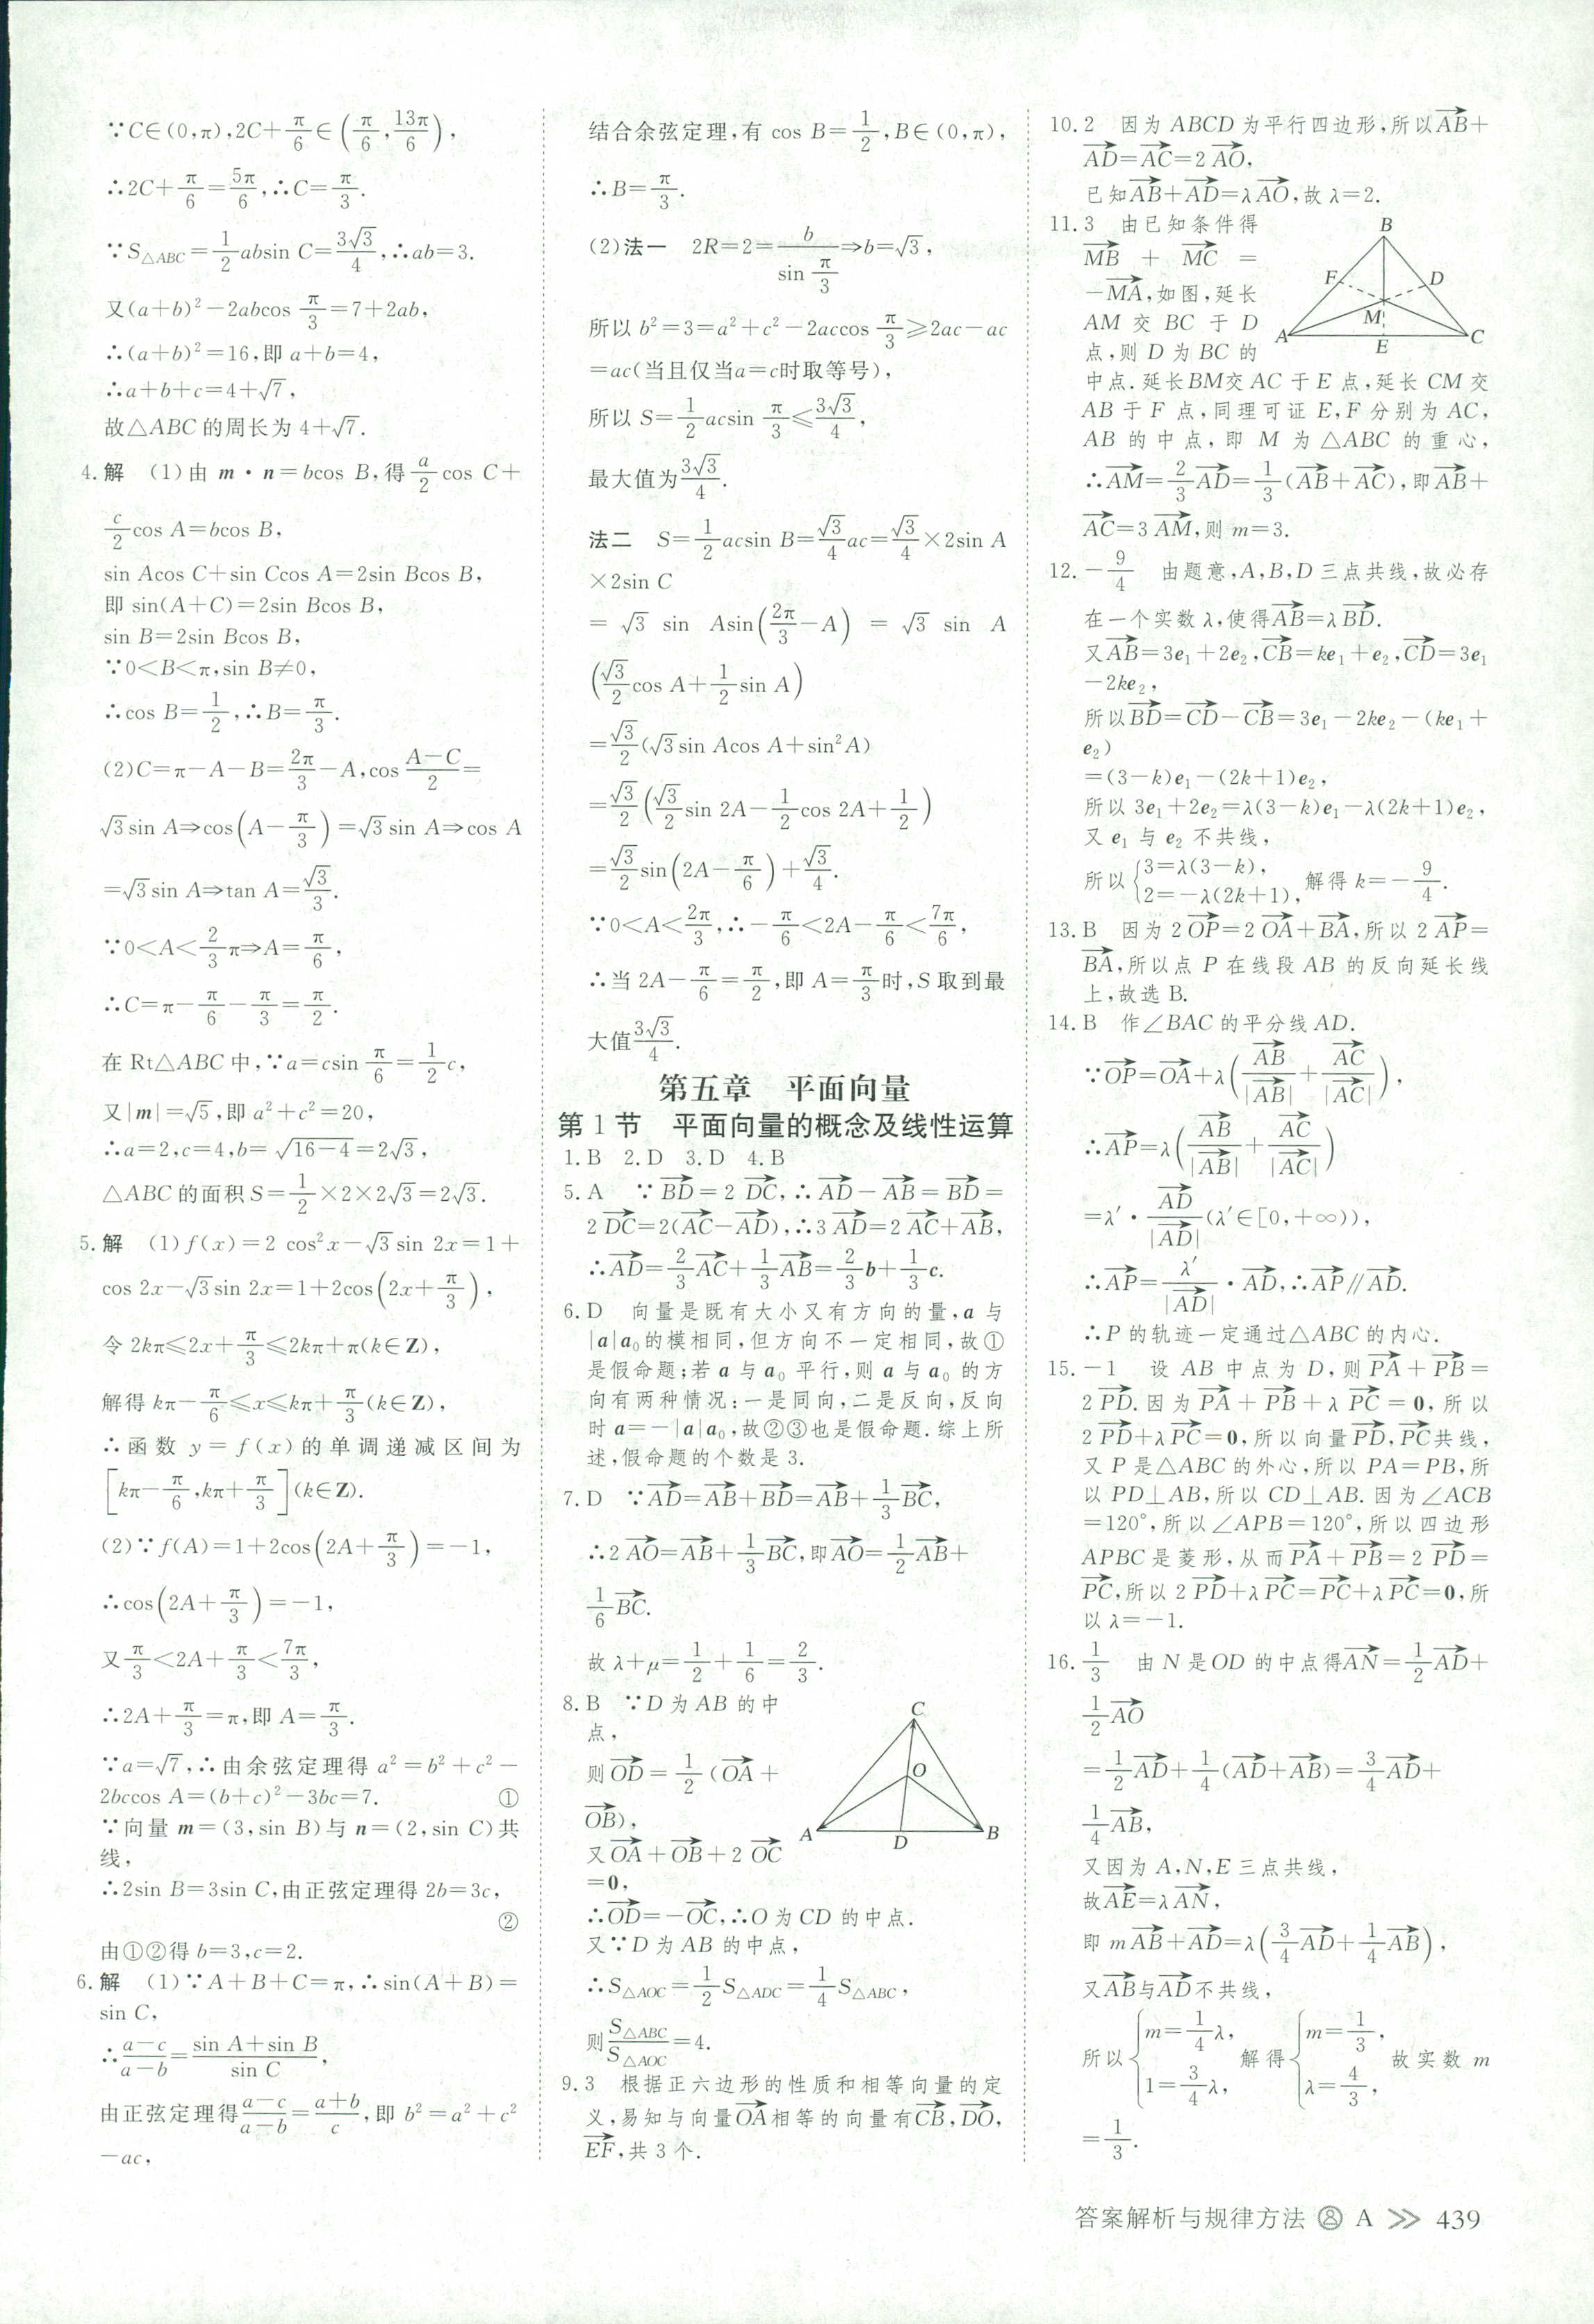 ∵C∈(0,π),2C+π/6∈(π/6,13π/6),
∴2C+π/6=5π/6,∴C=π/3.
∵S△ABC=1/2absin C=3√3/4,∴ab=3.
又(a+b)²-2abcos π/3=7+2ab,
∴(a+b)²=16,即a+b=4,
∴a+b+c=4+√7,
故△ABC的周长为4+√7.
4.解 (1)由m·n=bcos B,得a/2cos C+
c/2cos A=bcos B,
sin Acos C+sin Ccos A=2sin Bcos B,
即sin(A+C)=2sin Bcos B,
sin B=2sin Bcos B,
∵0<B<π,sin B≠0,
∴cos B=1/2,∴B=π/3.
(2)C=π-A-B=2π/3-A,cos(A-C)/2=
√3sin A⇒cos(A-π/3)=√3sin A⇒cos A
=√3sin A⇒tan A=√3/3.
∵0<A<2/3π⇒A=π/6,
∴C=π-π/6-π/3=π/2.
在Rt△ABC中,∵a=csin π/6=1/2c,
又|m|=√5,即a²+c²=20,
∴a=2,c=4,b=√(16-4)=2√3,
△ABC的面积S=1/2×2×2√3=2√3.
5.解 (1)f(x)=2 cos²x-√3sin 2x=1+
cos 2x-√3sin 2x=1+2cos(2x+π/3),
令2kπ≤2x+π/3≤2kπ+π(k∈Z),
解得kπ-π/6≤x≤kπ+π/3(k∈Z),
∴函数y=f(x)的单调递减区间为
[kπ-π/6,kπ+π/3](k∈Z).
(2)∵f(A)=1+2cos(2A+π/3)=-1,
∴cos(2A+π/3)=-1,
又π/3<2A+π/3<7π/3,
∴2A+π/3=π,即A=π/3.
∵a=√7,∴由余弦定理得a²=b²+c²-
2bccos A=(b+c)²-3bc=7. ①
∵向量m=(3,sin B)与n=(2,sin C)共
线,
∴2sin B=3sin C,由正弦定理得2b=3c,
②
由①②得b=3,c=2.
6.解 (1)∵A+B+C=π,∴sin(A+B)=
sin C,
∴(a-c)/(a-b)=(sin A+sin B)/sin C,
由正弦定理得(a-c)/(a-b)=(a+b)/c,即b²=a²+c²
-ac,
结合余弦定理,有cos B=1/2,B∈(0,π),
∴B=π/3.
(2)法一 2R=2=b/(sin π/3)⇒b=√3,
所以b²=3=a²+c²-2accos π/3≥2ac-ac
=ac(当且仅当a=c时取等号),
所以S=1/2acsin π/3≤3√3/4,
最大值为3√3/4.
法二 S=1/2acsin B=√3/4ac=√3/4×2sin A
×2sin C
=√3 sin Asin(2π/3-A)=√3 sin A
(√3/2cos A+1/2sin A)
=√3/2(√3sin Acos A+sin²A)
=√3/2(√3/2sin 2A-1/2cos 2A+1/2)
=√3/2sin(2A-π/6)+√3/4.
∵0<A<2π/3,∴-π/6<2A-π/6<7π/6,
∴当2A-π/6=π/2,即A=π/3时,S取到最
大值3√3/4.
第五章 平面向量
第1节 平面向量的概念及线性运算
1.B 2.D 3.D 4.B
5.A ∵BD→=2 DC→,∴AD→-AB→=BD→=
2 DC→=2(AC→-AD→),∴3 AD→=2 AC→+AB→,
∴AD→=2/3AC→+1/3AB→=2/3b+1/3c.
6.D 向量是既有大小又有方向的量,a与
|a|a₀的模相同,但方向不一定相同,故①
是假命题;若a与a₀平行,则a与a₀的方
向有两种情况:一是同向,二是反向,反向
时a=-|a|a₀,故②③也是假命题.综上所
述,假命题的个数是3.
7.D ∵AD→=AB→+BD→=AB→+1/3BC→,
∴2 AO→=AB→+1/3BC→,即AO→=1/2AB→+
1/6BC→.
故λ+μ=1/2+1/6=2/3.
8.B ∵D为AB的中
点,
则OD→=1/2(OA→+
OB→),
又OA→+OB→+2 OC→
=0,
C
O
A
D
B
∴OD→=-OC→,∴O为CD的中点.
又∵D为AB的中点,
∴S△AOC=1/2S△ADC=1/4S△ABC,
则S△ABC/S△AOC=4.
9.3 根据正六边形的性质和相等向量的定
义,易知与向量OA→相等的向量有CB→,DO→,
EF→,共3个.
10.2 因为ABCD为平行四边形,所以AB→+
AD→=AC→=2 AO→,
已知AB→+AD→=λAO→,故λ=2.
11.3 由已知条件得
MB→ + MC→ =
-MA→,如图,延长
AM交BC于D
点,则D为BC的
B
F
D
M
A
E
C
中点.延长BM交AC于E点,延长CM交
AB于F点,同理可证E,F分别为AC,
AB的中点,即M为△ABC的重心,
∴AM→=2/3AD→=1/3(AB→+AC→),即AB→+
AC→=3 AM→,则m=3.
12.-9/4 由题意,A,B,D三点共线,故必存
在一个实数λ,使得AB→=λBD→.
又AB→=3e₁+2e₂,CB→=ke₁+e₂,CD→=3e₁
-2ke₂,
所以BD→=CD→-CB→=3e₁-2ke₂-(ke₁+
e₂)
=(3-k)e₁-(2k+1)e₂,
所以3e₁+2e₂=λ(3-k)e₁-λ(2k+1)e₂,
又e₁与e₂不共线,
所以{3=λ(3-k), 2=-λ(2k+1), 解得k=-9/4.
13.B 因为2 OP→=2 OA→+BA→,所以2 AP→=
BA→,所以点P在线段AB的反向延长线
上,故选B.
14.B 作∠BAC的平分线AD.
∵OP→=OA→+λ(AB→/|AB→|+AC→/|AC→|),
∴AP→=λ(AB→/|AB→|+AC→/|AC→|)
=λ′·AD→/|AD→|(λ′∈[0,+∞)),
∴AP→=λ′/|AD→|·AD→,∴AP→∥AD→.
∴P的轨迹一定通过△ABC的内心.
15.-1 设AB中点为D,则PA→+PB→=
2 PD→.因为PA→+PB→+λ PC→=0,所以
2 PD→+λPC→=0,所以向量PD→,PC→共线,
又P是△ABC的外心,所以PA=PB,所
以PD⊥AB,所以CD⊥AB.因为∠ACB
=120°,所以∠APB=120°,所以四边形
APBC是菱形,从而PA→+PB→=2 PD→=
PC→,所以2 PD→+λPC→=PC→+λPC→=0,所
以λ=-1.
16.1/3 由N是OD的中点得AN→=1/2AD→+
1/2AO→
=1/2AD→+1/4(AD→+AB→)=3/4AD→+
1/4AB→,
又因为A,N,E三点共线,
故AE→=λAN→,
即mAB→+AD→=λ(3/4AD→+1/4AB→),
又AB→与AD→不共线,
所以{m=1/4λ, 1=3/4λ, 解得{m=1/3, λ=4/3, 故实数m
=1/3.
答案解析与规律方法 A >> 439